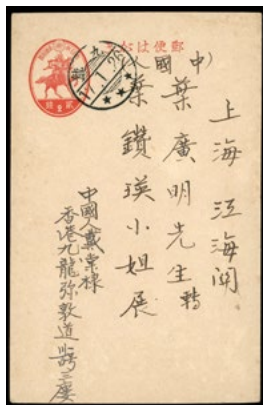 郵便はがき
(中國人)
上海江海関
葉廣明先生轉
葉鑽瑛小姐展
中國人戴棠棣
香港九龍弥敦道三樓